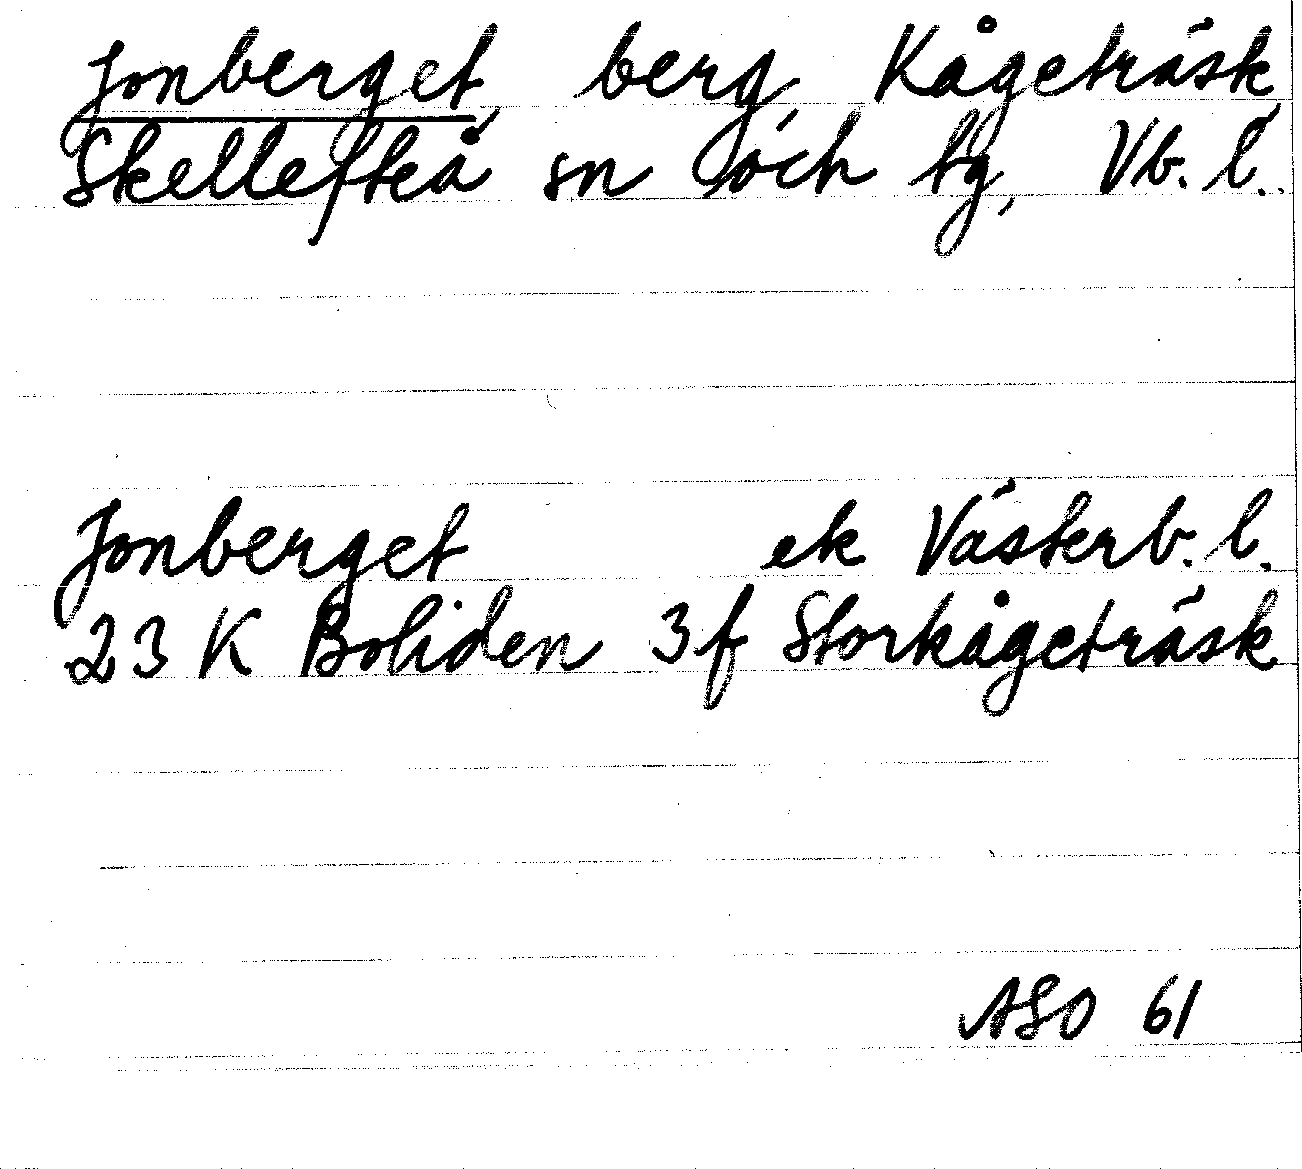 Jonberget, berg, Kågeträsk
Skellefteå sn och tg, Vb. l.
Jonberget ek Västerb. l.
23 K Boliden 3f Storkågeträsk
ASO 61